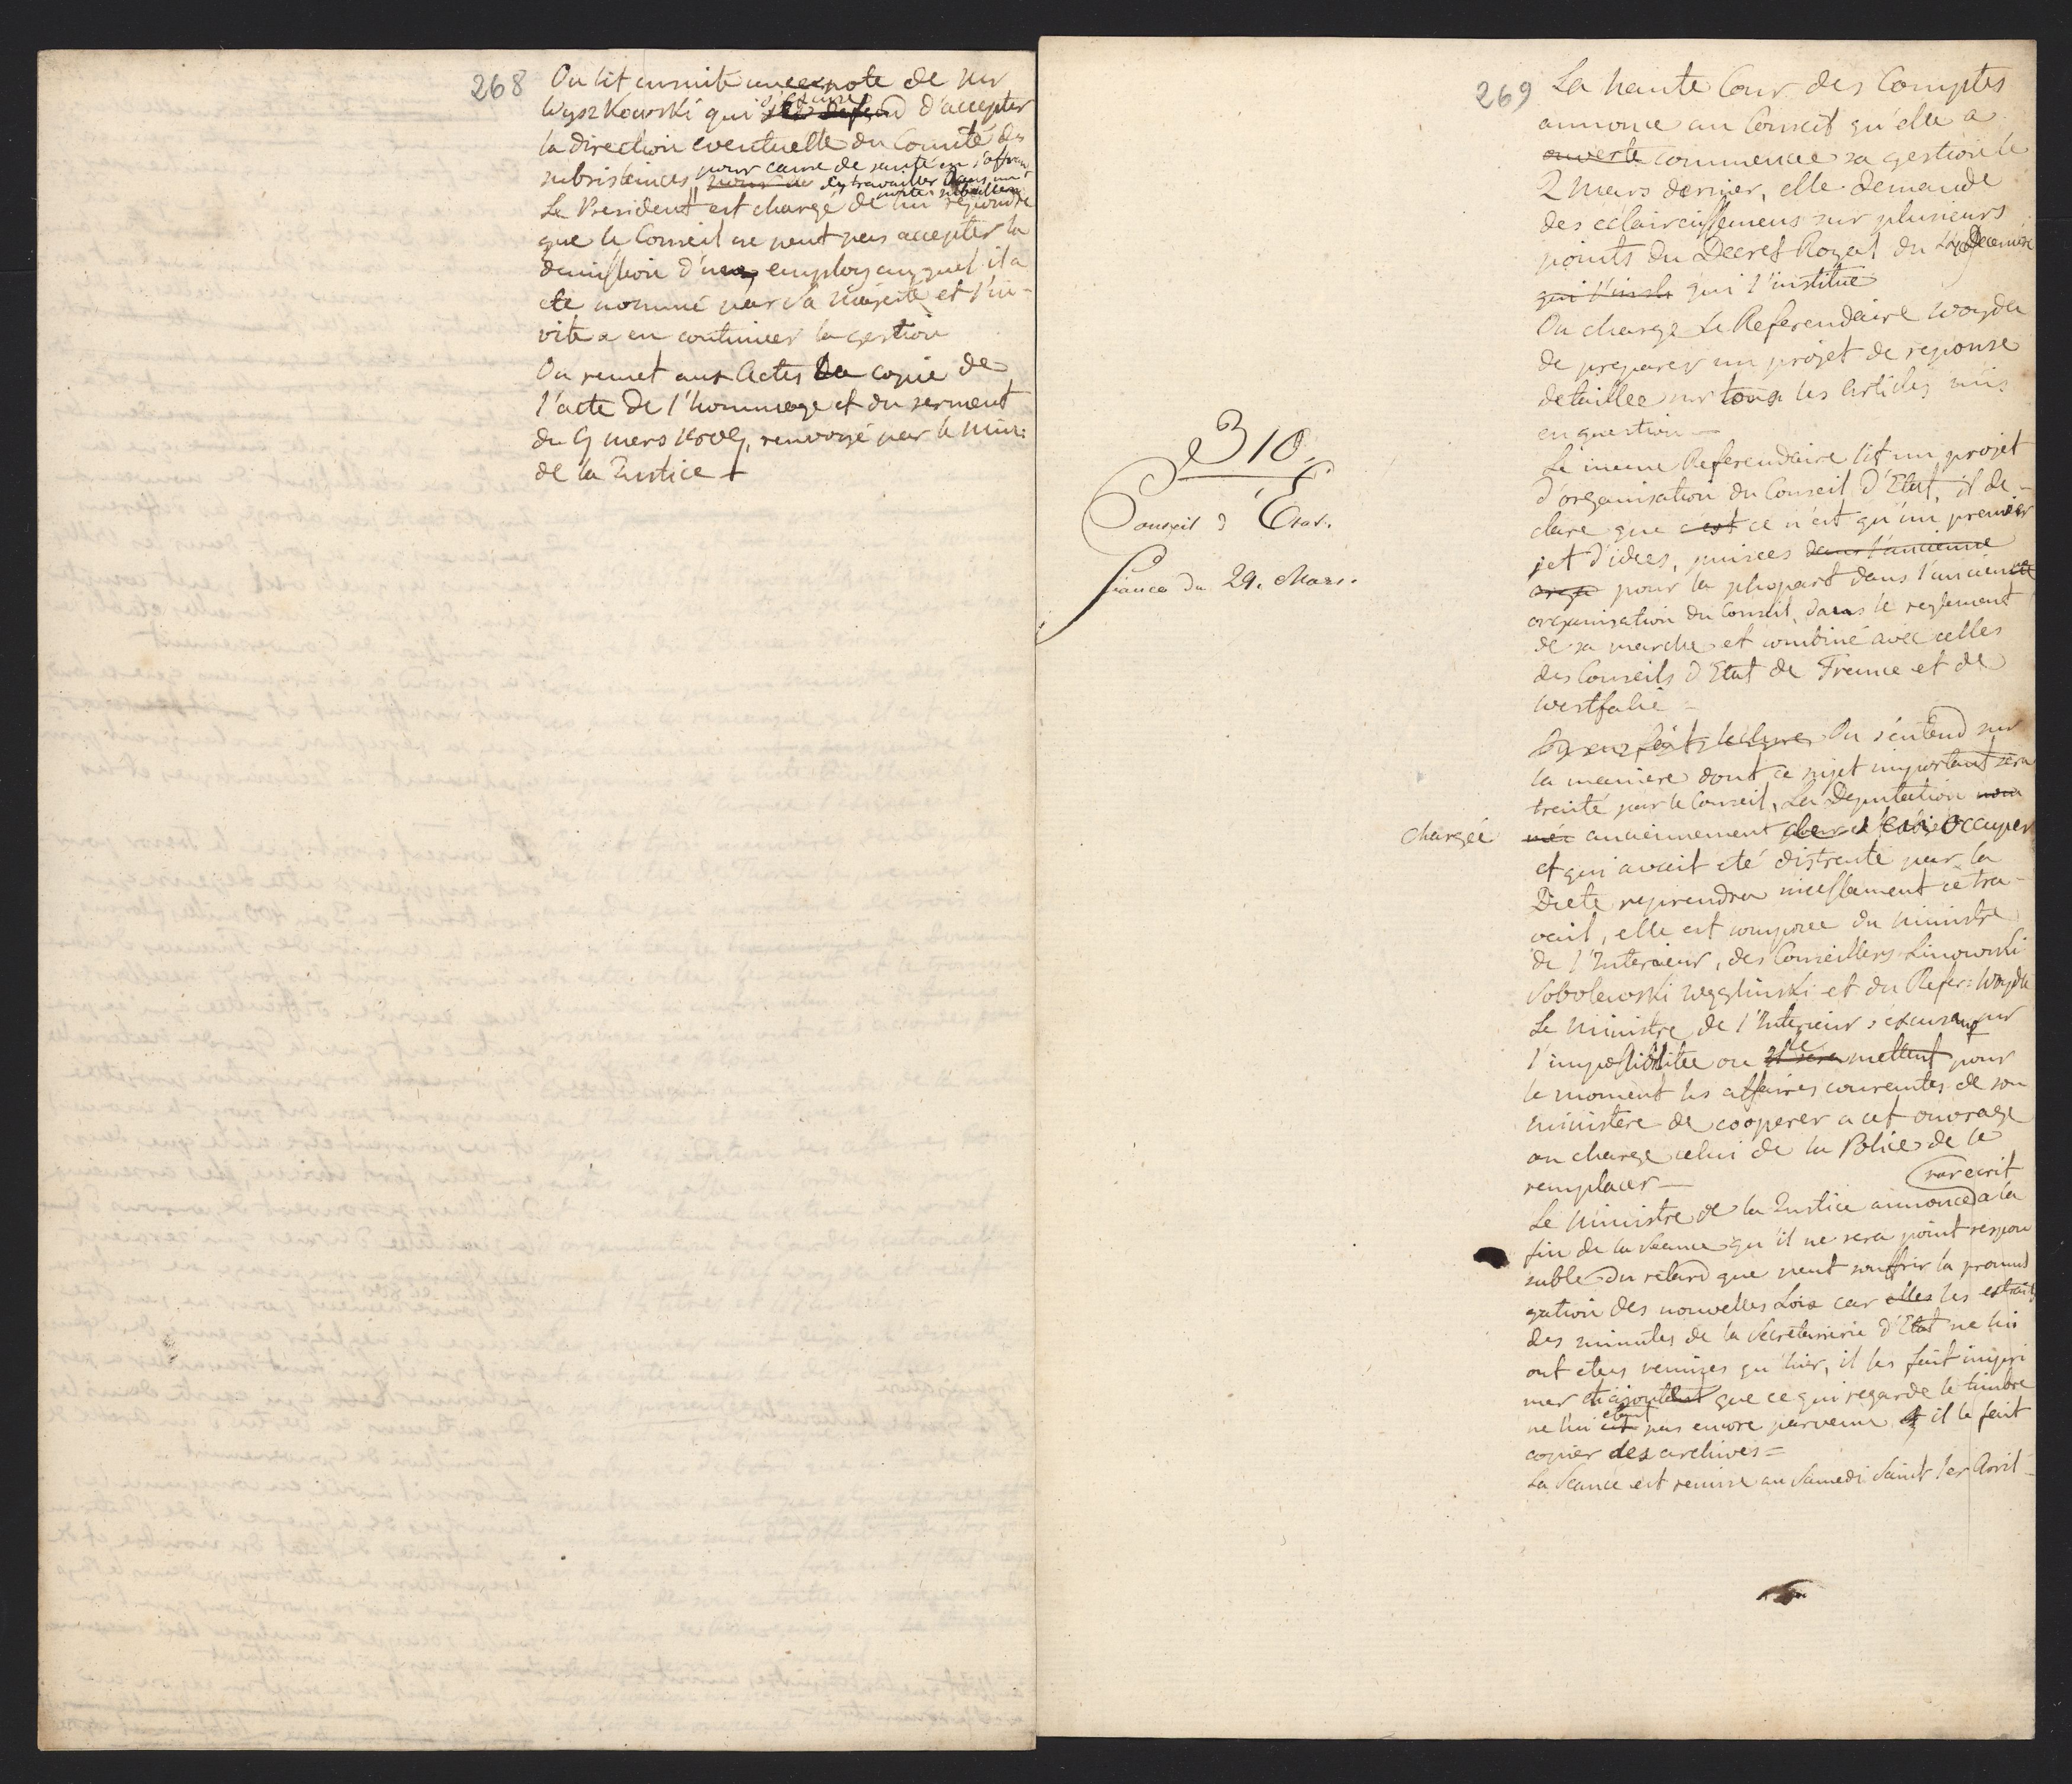 268
On lit ensuite une note de Mr
Wyszkowski qui s'excuse d'accepter
la direction eventuelle du Comité des
subsistences pour cause de santé en s'offrant
d'y travailler dans un
poste subalterne
Le President est chargé de lui repondre
que le Conseil ne peut pas accepter la
demission d'un employ auquel il a
eté nommé par Sa Majesté et l'in-
vite a en continuer la gestion
On remet aux Actes la copie de
l'acte de l'hommage et du serment
du 9 mars 1809, renvoyé par le Min:
de la Justice +
310.
Conseil d'Etat.
Seance du 29. Mars.
269
La haute Cour des Comptes
annonce au Conseil qu'elle a
ouverte commencee sa gestion le
2 Mars dernier, elle demande
des eclaircissemens sur plusieurs
points du Decret Royal du Decembre
qui l'insti qui l'institue
On charge le Referendaire Woyda
de preparer un projet de reponse
detaillee sur tous les articles mis
en question —
Le meme Referendaire lit un projet
d'organisation du Conseil d'Etat, il de-
clare que c'est ce n'est qu'un premier
jet d'idees, puisees dans l'ancienne
orga pour la plupart dans l'ancienne
organisation du Conseil, dans le reglement
de sa marche et combiné avec celles
des Conseils d'Etat de France et de
Westfalie —
On s'entend sur
la maniere dont ce sujet important sera
traité par le Conseil, La Deputation nom
chargée mée anciennement de s'en occuper
et qui avait eté distraite par la
Diete reprendra incessament ce tra-
vail, elle est composee du Ministre
de l'Interieur, des Conseillers Linowski
Sobolewski Węgliński et du Refer: Woyda
Le Ministre de l'Interieur s'excusant sur
l'impossibilitee ou le mettent pour
le moment les affaires courantes de son
ministere de cooperer a cet ouvrage
on charge celui de la Police de le
remplacer —
par ecrit
Le Ministre de la Justice annonce a la
fin de la Seance qu'il ne sera point respon
sable du retard que peut souffrir la promul
gation des nouvelles Lois car elles les extraits
des minutes de la Secretairerie d'Etat ne lui
ont eteus remises qu'hier, il les fait impri
mer et ajoutent que ce qui regarde le timbre
ne lui est etant pas encore parvenu et il le fait
copier des archives =
La Seance est remise au Samedi Saint 1er Avril —